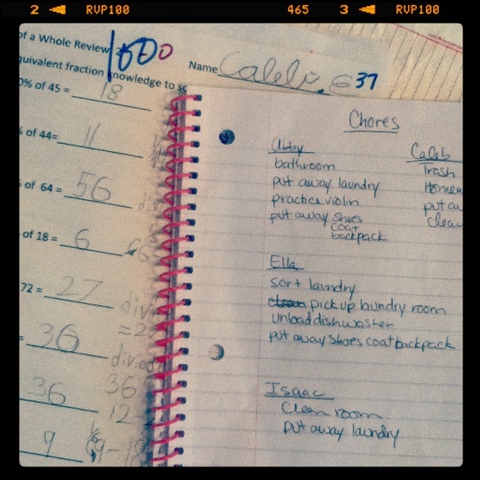 2 RVP100 465 3 RVP100
of a Whole Review
1000
quivalent fraction knowledge to so
Name Caleb C 37
0% of 45 = 18
% of 44= 11
of 64 = 56
of 18 = 6
72 = 27
= 36
36
9
36
12
Chores
Abby
bathroom
put away laundry
practice violin
put away shoes
coat
backpack
Caleb
Trash
put a
clean
Ella
sort laundry
pick up laundry room
unload dishwasher
put away shoes coat backpack
Isaac
Clean room
put away laundry